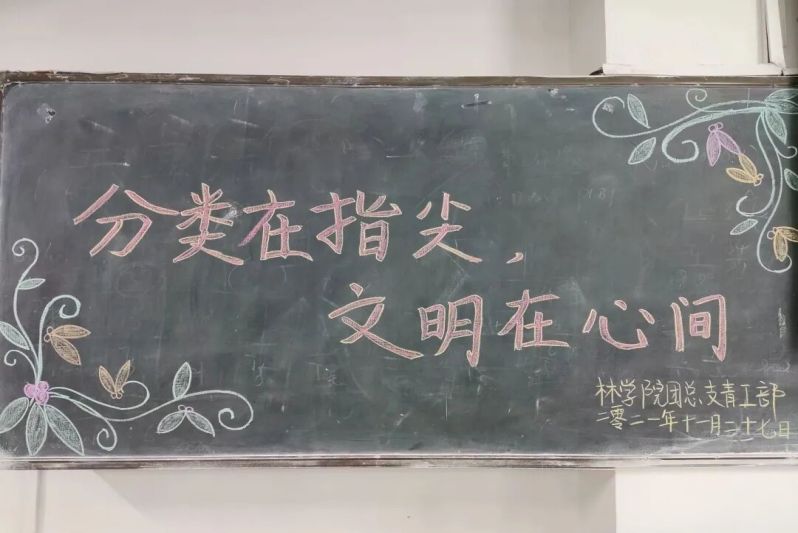 分类在指尖，
文明在心间
林学院团总支青工部
二零二一年十一月二十七日